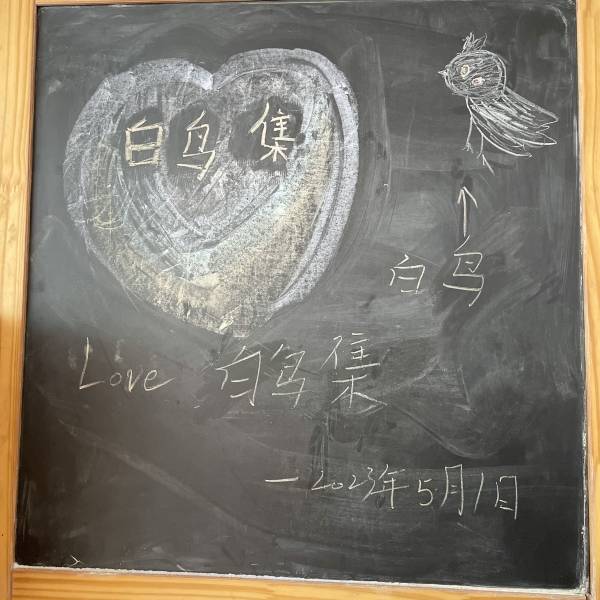 白鸟集
白鸟
Love 白鸟集
一2023年5月1日